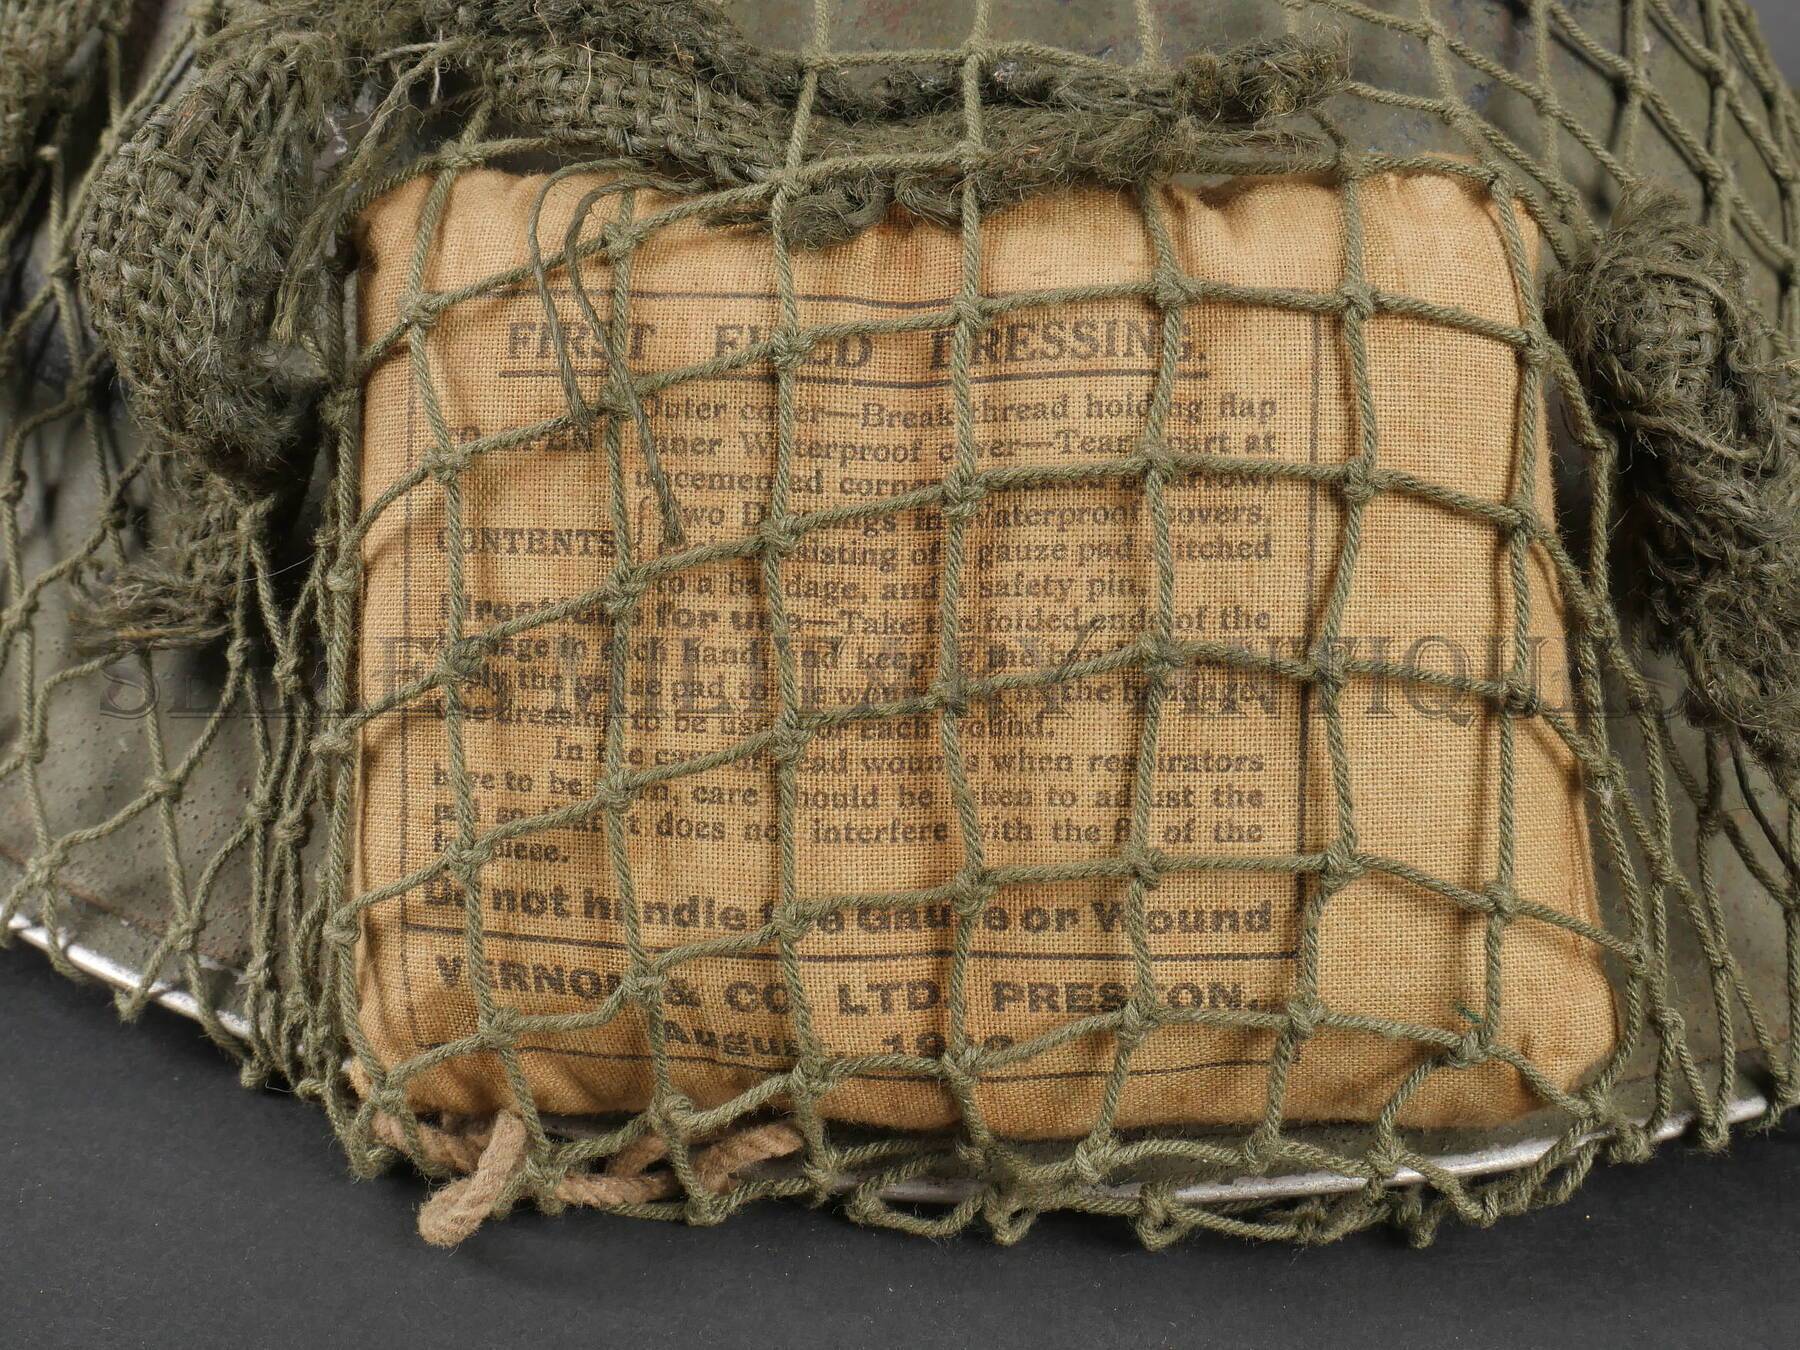 FIRST FIELD DRESSING.
Outer cover—Break thread holding flap
TO OPEN Inner Waterproof cover—Tear apart at
uncemented corner arrow)
CONTENTS Two Dressings in Waterproof covers,
consisting of a gauze pad stitched
to a bandage, and a safety pin.
Directions for use—Take the folded ends of the
bandage in each hand, and keeping the bandage
apply the gauze pad to the wound the bandage.
One dressing to be used for each wound.
In the case of head wounds when respirators
have to be worn, care should be taken to adjust the
pad so that it does not interfere with the fit of the
face-piece.
Do not handle the Gauze or Wound
VERNON & CO. LTD. PRESTON.
August
SELLIER MILITARY ANTIQUES